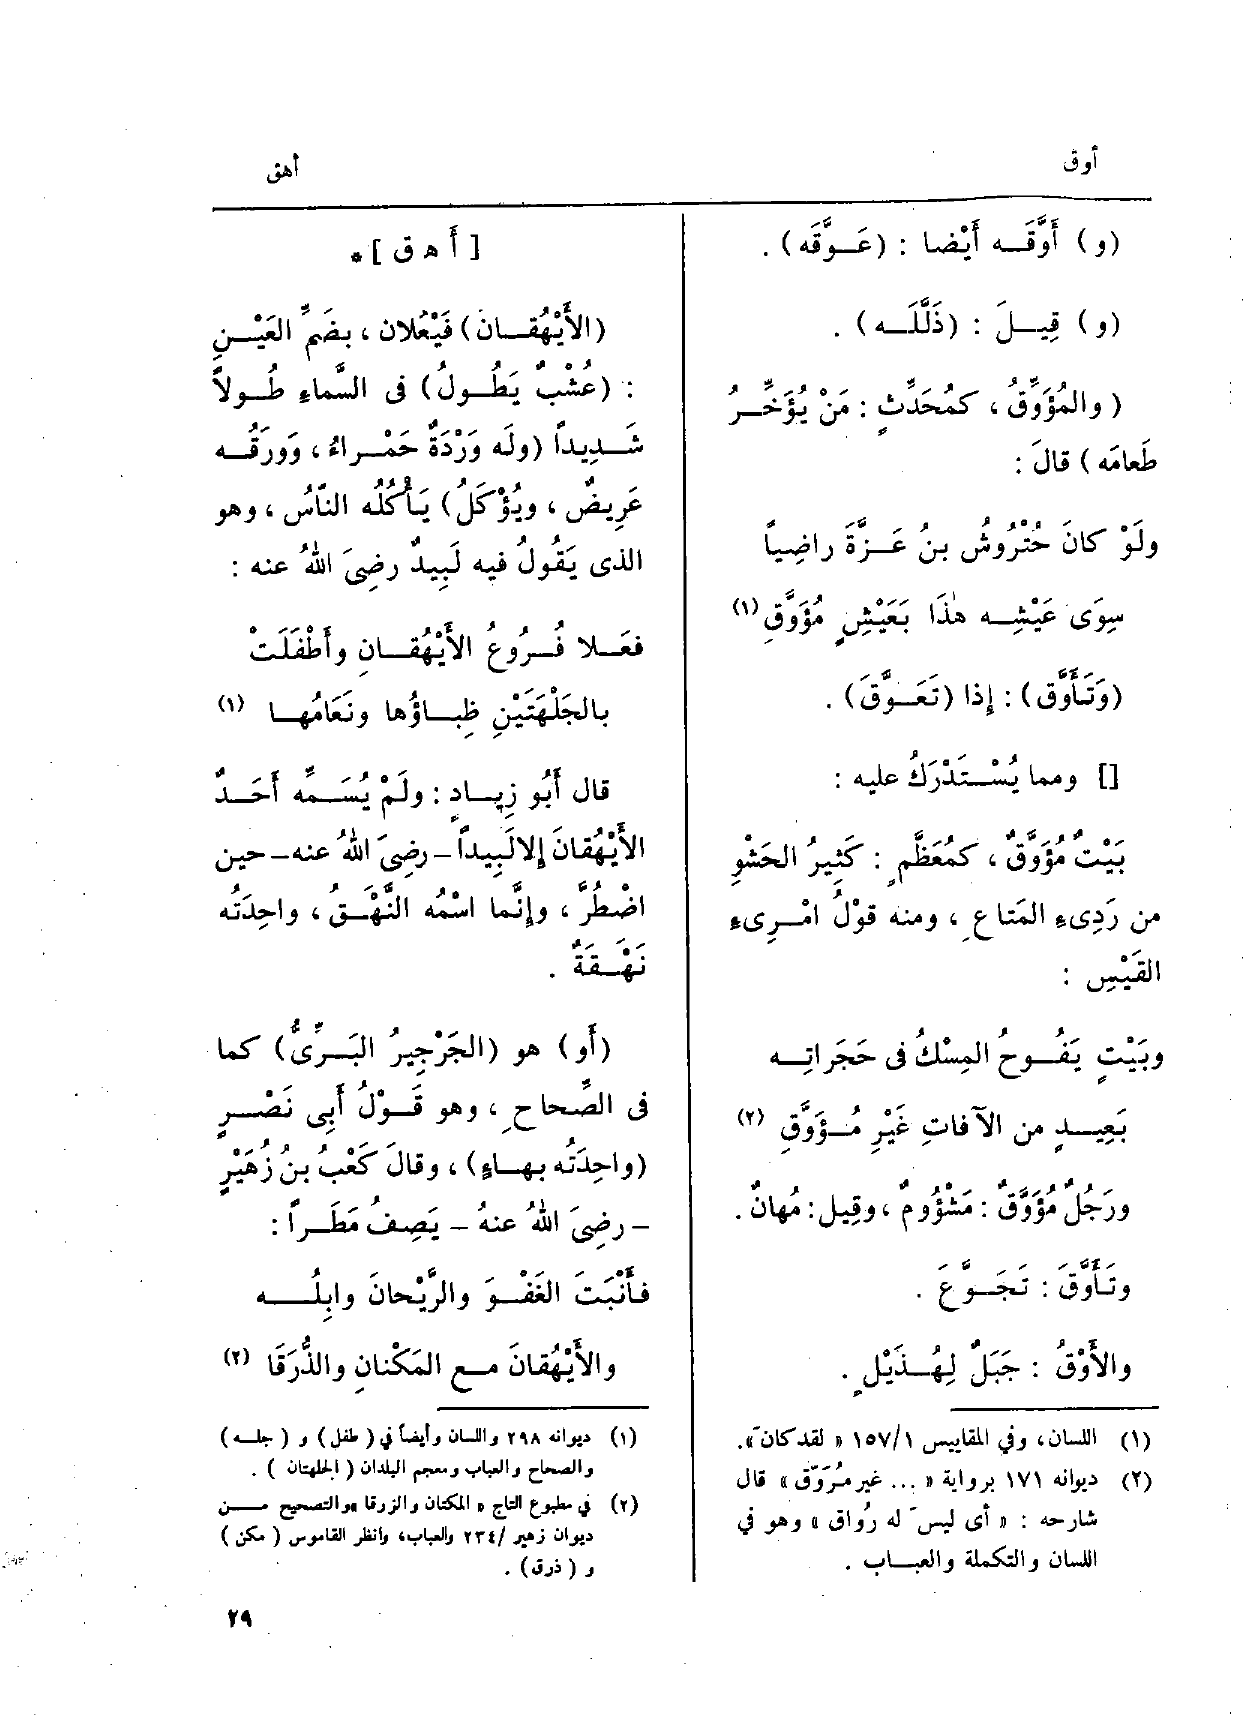 أوق
أهق
(و) أَوَّقَــه أَيْضا : (عَــوَّقَه) .
(و) قِيــلَ : (ذَلَّلَــه) .
( والمُؤَوِّقُ ، كمُحَدِّثٍ : مَنْ يُؤَخِّــرُ
طَعامَه ) قالَ :
ولَوْ كانَ خُتْرُوشُ بنُ عَــزَّةَ راضِيـاً
سِوَى عَيْشِــه هٰذَا بَعَيْشٍ مُؤَوَّقِ (١)
(وَتَأَوَّق) : إِذا (تَعَــوَّقَ) .
[] ومما يُسْــتَدْرَكُ عليه :
بَيْتٌ مُؤَوَّقٌ ، كمُعَظَّمٍ : كَثِيرُ الحَشْوِ
من رَدِىءِ المَتاعِ ، ومنه قولُ امْــرِىءِ
القَيْسِ :
وبَيْتٍ يَفُــوحُ المِسْكُ فى حَجَراتِــه
بَعِيــدٍ من الآفاتِ غَيْرِ مُــؤَوَّقِ (٢)
ورَجُلٌ مُؤَوَّقٌ : مَشْؤُومٌ ، وقِيل : مُهانٌ .
وتَأَوَّقَ : تَجَــوَّعَ .
والأَوْقُ : جَبَلٌ لِهُــذَيْلٍ .
(١) اللسان ، وفي المقاييس ١٥٧/١ « لقد كان » .
(٢) ديوانه ١٧١ برواية « ... غير مُرَوَّق » قال
شارحه : « أى ليس له رُواق » وهو في
اللسان والتكملة والعبــاب .
[ أ هـ ق ] *
(الأَيْهُقــان) فَيْعُلان ، بضَمِّ العَيْــنِ
: (عُشْبٌ يَطُــولُ) فى السَّماءِ طُــولاً
شَــدِيداً (ولَه وَرْدَةٌ حَمْــراءُ ، وَوَرَقُــه
عَرِيضٌ ، ويُؤْكَلُ) يَأْكُلُه النّاسُ ، وهو
الذى يَقُولُ فيه لَبِيدٌ رضِىَ اللهُ عنه :
فعَــلا فُــرُوعُ الأَيْهُقــانِ وأَطْفَلَتْ
بالجَلْهَتَيْنِ ظِبــاؤُها ونَعَامُهــا (١)
قال أَبُو زِيــادٍ : ولَمْ يُسَــمِّه أَحَــدٌ
الأَيْهُقانَ إلا لَبِيداً – رضِىَ اللهُ عنه – حين
اضْطُرَّ ، وإِنَّما اسْمُه النَّهْــق ، واحِدَتُه
نَهْــقَةٌ .
(أَو) هو (الجَرْجِيرُ البَــرِّىُّ) كما
فى الصِّحاحِ ، وهو قَــوْلُ أَبِى نَصْــرٍ
(واحِدَتُه بهــاءٍ) ، وقالَ كَعْبُ بنُ زُهَيْرٍ
– رضِىَ اللهُ عنهُ – يَصِفُ مَطَــراً :
فأَنْبَتَ الغَفْــوَ والرَّيْحانَ وابِلُــــه
والأَيْهُقانَ مــع المَكْنانِ والذُّرَقَا (٢)
(١) ديوانه ٢٩٨ واللسان وأيضاً في ( طفل ) و ( جلــه )
والصحاح والعباب ومعجم البلدان ( الجلهتان ) .
(٢) في مطبوع التاج « المكتان والزرقا » والتصحيح مــن
ديوان زهير /٢٣٤ والعباب ، وانظر القاموس ( مكن )
و ( ذرق ) .
٢٩